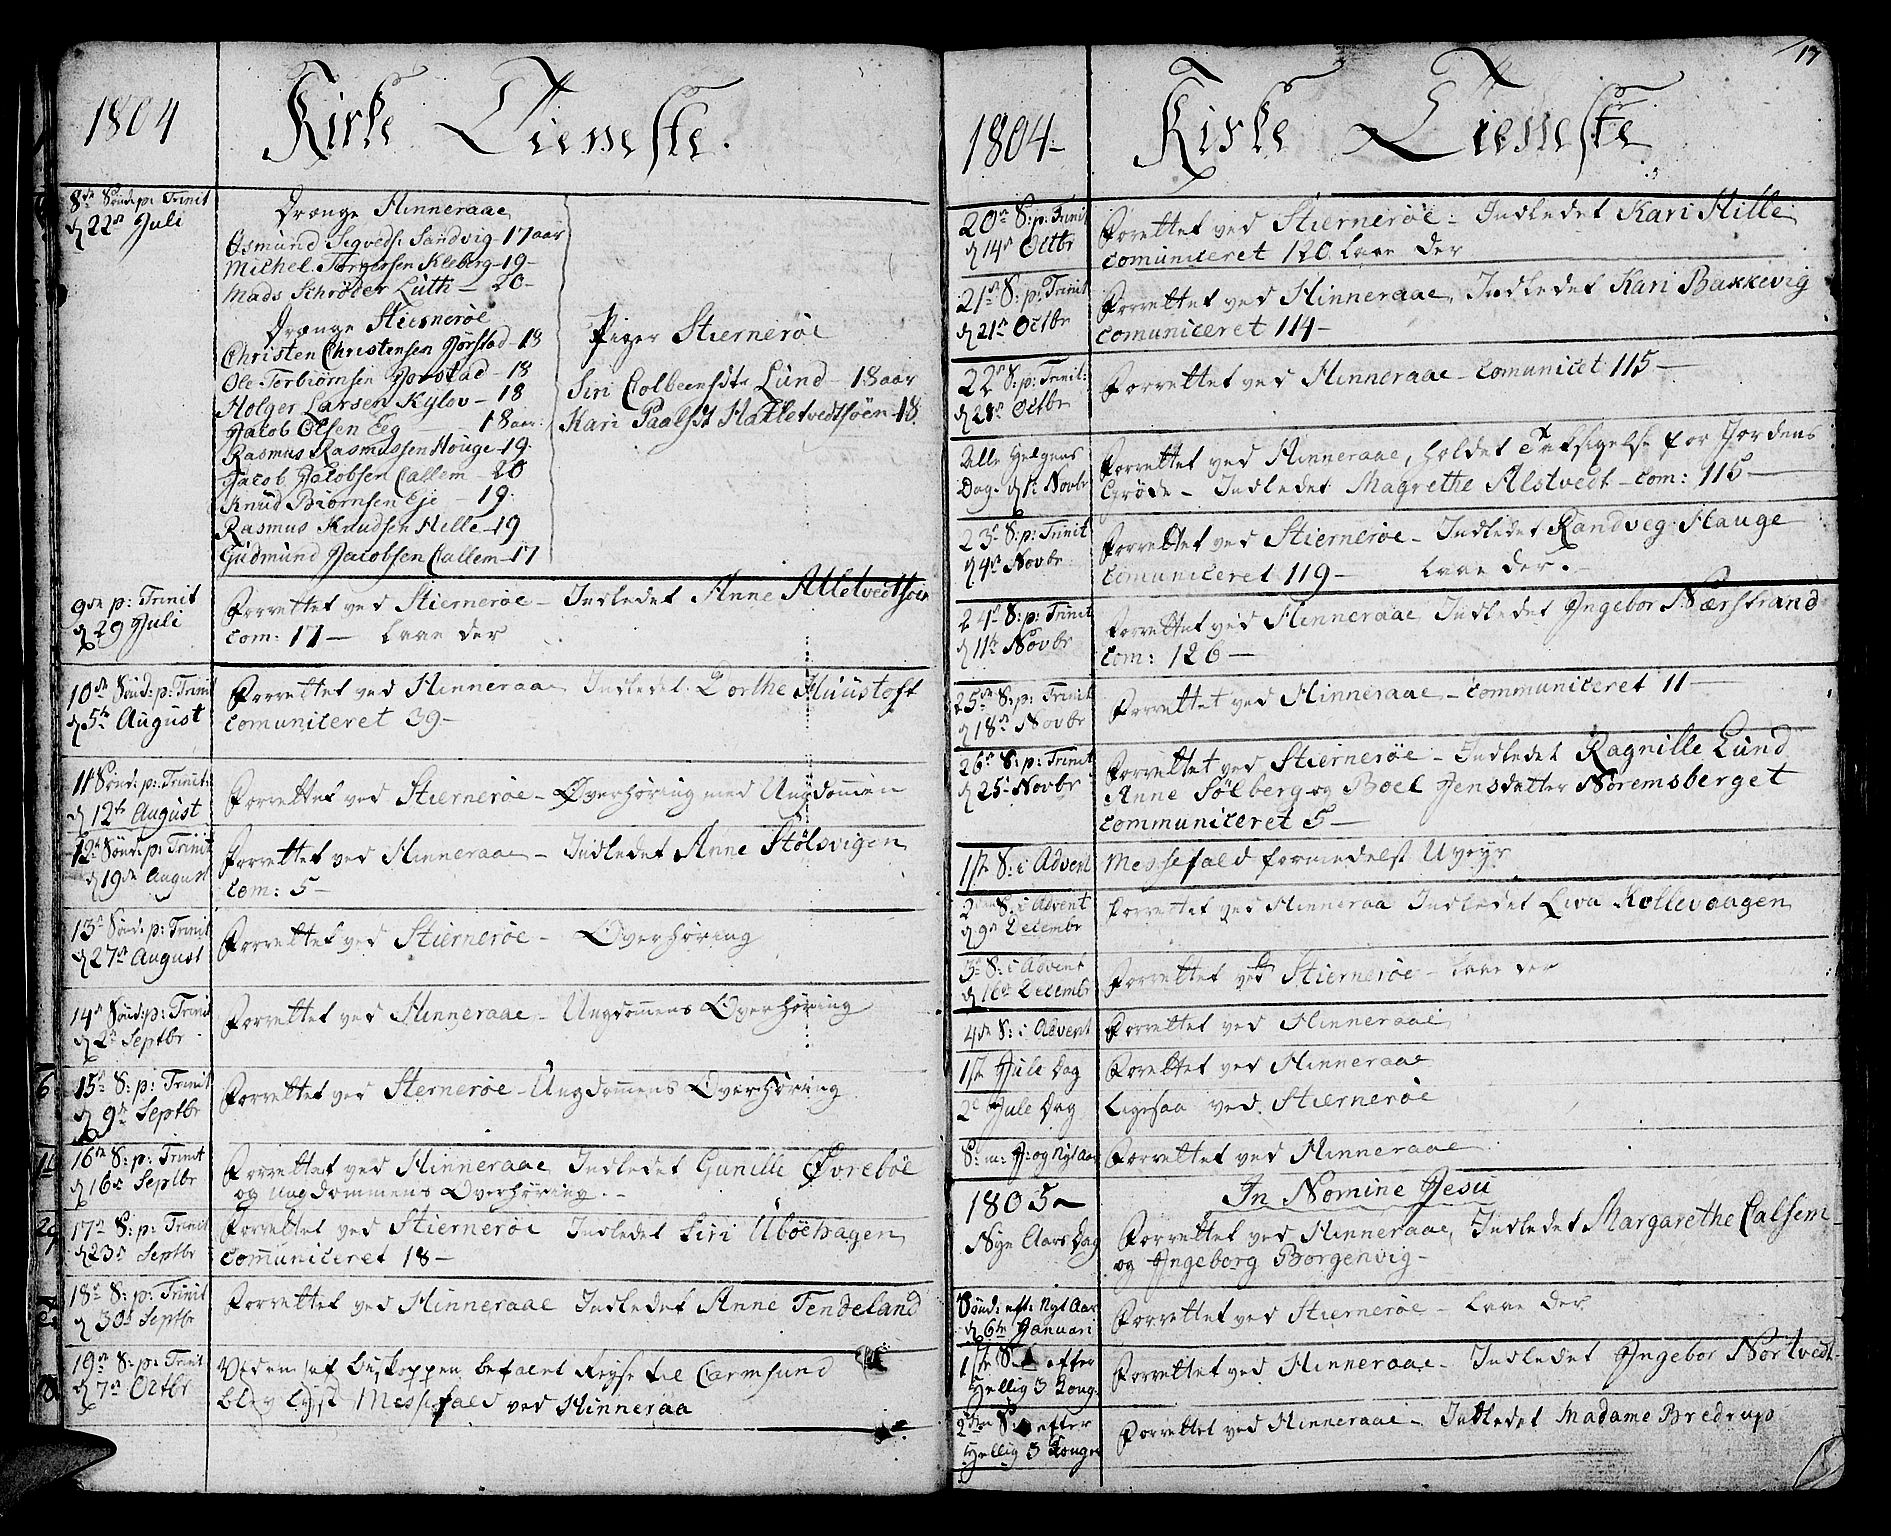 1804 Kirke Tieneste.
8de Sønd: p: Trinit
d 22de Juli
Drænge Hinneraae
Osmund Segveds: Sandvig - 17 aar
Michel Torgersen Kleberg - 19 -
Mads Schrøder Lütti - 20 -
Drænge Stiernerøe
Christen Christensen Jørstad - 18
Ole Torbiørnsen Jørstad - 18
Holger Larsen Kylov - 18
Jacob Olsen Eeg 18 aar
Rasmus Rasmussen Houge - 19
Jacob Jacobsen Callem - 20
Knud Biørnsen Eje - 19
Rasmus Knudsen Helle - 19
Gudmund Jacobsen Callem - 17
Piger Stiernerøe
Siri Colbeensdtr Lund - 18 aar
Kari Paalsdt Hatletvedtsøen - 18
9de p: Trinit
d 29 Juli
Forrettet ved Stiernerøe - Indledet Anne Atletvedtsøen
Com: 17 - Laae der
10de Sønd: p: Trinit
d 5te August
Forrettet ved Hinneraae Indledet Dorthe Huustoft
Comuniceret 39 -
11 Sønd: p: Trinit:
d 12te August
Forrettet ved Stiernerøe - Overhøring med Ungdommen
12te Sønd: p: Trinit
d 19de August
Forrettet ved Hinneraae - Indledet Anne Stølsvigen
Com: 5 -
13de Sønd: p: Trinit
d 27de August
Forrettet ved Stiernerøe - Overhøring
14de Sønd: p: Trinit
d 2de Septbr
Forrettet ved Hinneraae - Ungdommens Overhøring
15de S: p: Trinit
d 9de Septbr
Forrettet ved Sternerøe - Ungdommens Overhøring
16de S: p: Trinit
d 16de Septbr
Forrettet ved Hinneraae Indledet Gunille Øvrebøe
og Ungdommens Overhøring. -
17de S: p: Trinit
d 23de Septbr
Forrettet ved Stiernerøe Indledet Siri Uboehagen
Comuniceret 18 -
18de S: p: Trinit
d 30de Septbr
Forrettet ved Hinneraae Indledet Anne Tendeland
19de S: p: Trinit
d 7de Octbr
Vedem af Biskoppen befalet Rejse til Carmsund
blev lyst Messefald ved Hinneraa
17
1804 - Kirke Tieneste
20de S: p: Trinit
d 14de Octbr
Forrettet ved Stiernerøe - Indledet Kari Hille
Comuniceret 120 Laae der
21de S: p: Trinit
d 21de Octbr
Forrettet ved Hinneraae, Indledet Kari Bakkevig
Comuniceret 114 -
22de S: p: Trinit:
d 28de Octbr
Forrettet ved Hinneraae - Comunicet 115 -
Alle Helgens
Dag d 1te Novbr
Forrettet ved Hinneraae, holdet Taksigelse for Jordens
Grøde - Indledet Magrethe Alstvedt - Com: 115 -
23de S: p: Trinit
d 4de Novbr
Forrettet ved Stiernerøe - Indledet Randveg Hauge
Comuniceret 119 - Laae der. -
24de S: p: Trinit
d 11te Novbr
Forrettet ved Hinneraae Indledet Ingebor Nærstrand
Com: 126 -
25de S: p: Trinit
d 18de Novbr
Forrettet ved Hinneraae - Communiceret 11 -
26de S: p: Trinit
d 25de Novbr
Forrettet ved Stiernerøe - Indledet Ragnille Lund
Anne Sølberg og Boel Jensdatter Nøremsberget
Communiceret 5 -
1ste S: i Advent
Messefald formedelst Uveyr
2den S: i Advent
d 9de Decembr
Forrettet ved Hinneraa Indledet Liva Kollevaagen
3de S: i Advent
d 16de Decembr
Forrettet ved Stiernerøe - Laae der
4de S: i Advent
Forrettet ved Hinneraae
1ste Jule Dag
Forrettet ved Hinneraae
2de Jule Dag
Ligesaa ved Stiernerøe
S: m: J: og Nyt Aar
Forrettet ved Hinneraae
1805 - In Nomine Jesu
Nye Aars Dag
Forrettet ved Hinneraae, Indledet Margarethe Calsem -
og Ingeborg Borgenvig -
Sønd: eft: Nyt Aar
d 6te Januari
Forrettet ved Stiernerøe - Laae der
1ste S: efter
Hellig 3 Kong:
Forrettet ved Hinneraae - Indledet Ingebor Nortvedt -
2den S: efter
Hellig 3 Konger
Forrettet ved Hinneraae - Indledet Madame Bredrup